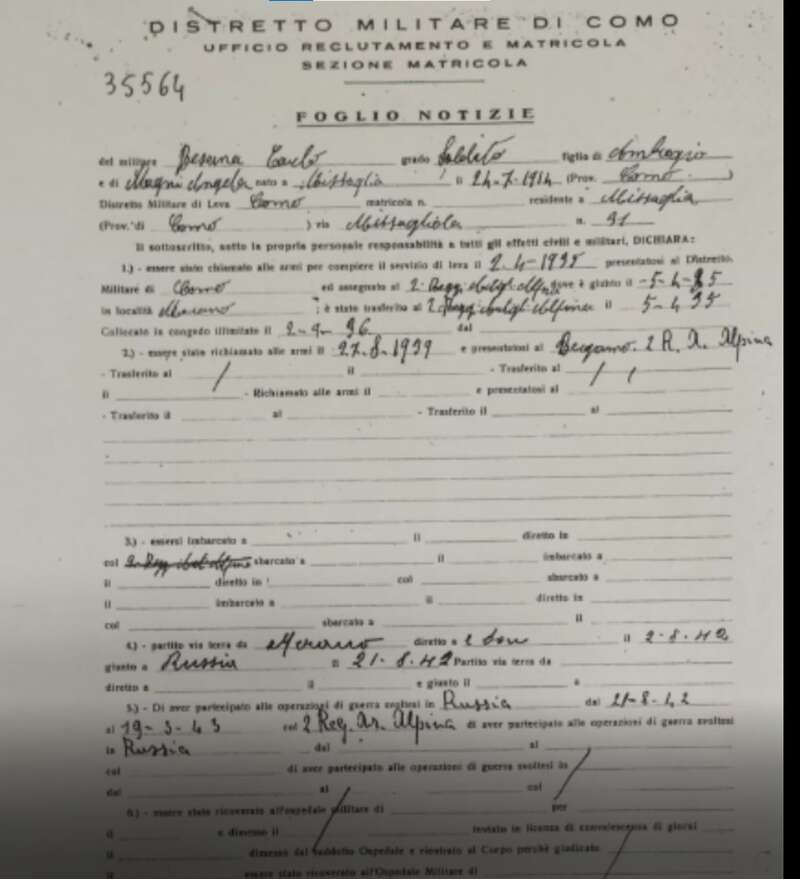 DISTRETTO MILITARE DI COMO
UFFICIO RECLUTAMENTO E MATRICOLA
SEZIONE MATRICOLA
35564
FOGLIO NOTIZIE
del militare Besana Carlo grado Soldato figlio di Ambrogio
e di Magni Angela nato a Missaglia il 24-7-1914 (Prov. Como )
Distretto Militare di Leva Como matricola n. residente a Missaglia
(Prov. di Como ) via Missagliola n. 31
Il sottoscritto, sotto la propria personale responsabilità a tutti gli effetti civili e militari, DICHIARA:
1.) - essere stato chiamato alle armi per compiere il servizio di leva il 2.4-1935 presentatosi al Distretto
Militare di Como ed assegnato al 2° Regg dove è giunto il -5-4-35
in località Merano ; è stato trasferito al 2 Regg Alpina il 5-4 35
Collocato in congedo illimitato il 2-9-36 dal
2.) - essere stato richiamato alle armi il 27-8-1939 e presentatosi al Bergamo. 2 R. A. Alpina
- Trasferito al il - Trasferito al
il - Richiamato alle armi il e presentatosi al
- Trasferito il al - Trasferito il al
3.) - essersi imbarcato a il diretto in
col sbarcato a il imbarcato a
il diretto in col sbarcato a
il imbarcato a il diretto in
col sbarcato a il
4.) - partito via terra da Merano diretto a il 2-8-42
giunto a Russia il 21-8-42 Partito via terra da
diretto a il e giunto il a
5.) - Di aver partecipato alle operazioni di guerra svoltesi in Russia dal 21-8-42
al 19-3-43 col 2 Reg. Ar. Alpina di aver partecipato alle operazioni di guerra svoltesi
in Russia dal al
col di aver partecipato alle operazioni di guerra svoltesi in
dal al col
6.) - essere stato ricoverato all'ospedale militare di per
il e dimesso il inviato in licenza di convalescenza di giorni
il dimesso dal suddetto Ospedale e rientrato al Corpo perchè giudicato
essere stato ricoverato all'Ospedale Militare di